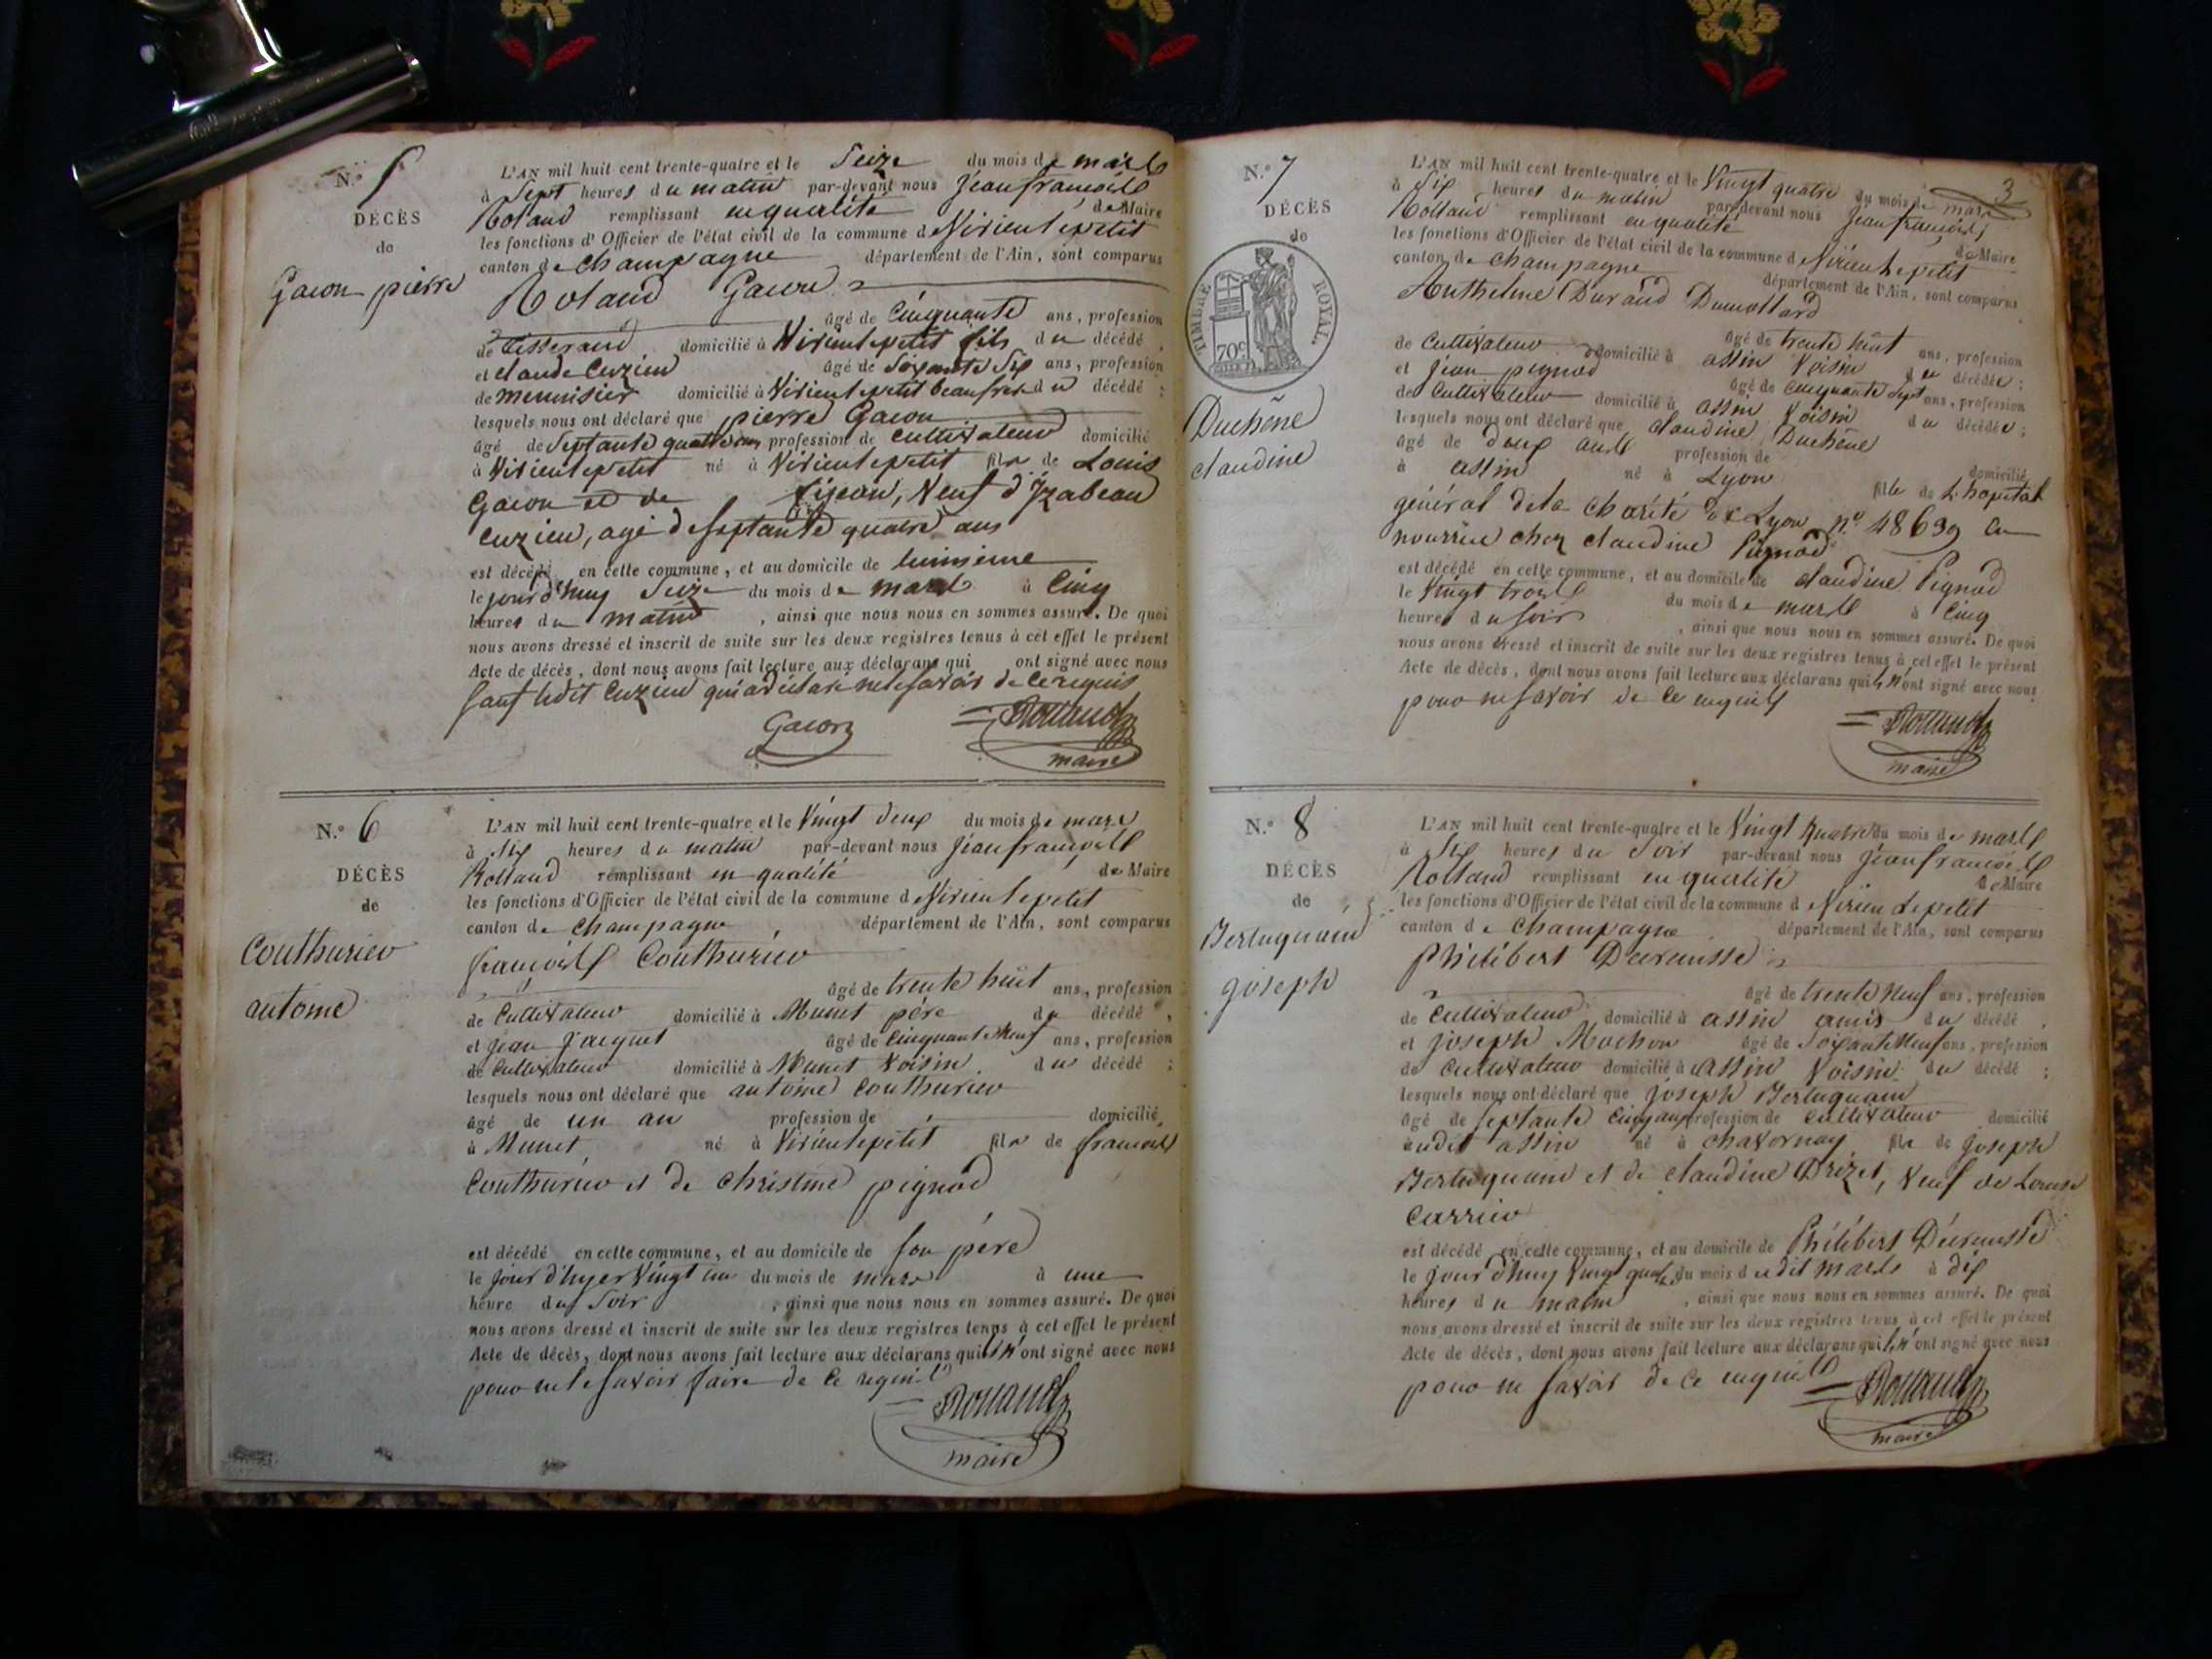 N.° 5
DÉCÈS
de
Gacon pierre
L'AN mil huit cent trente-quatre et le Seize du mois de mars
à Sept heures du matin par-devant nous Jean françois
Roland remplissant en qualité de Maire
les fonctions d'Officier de l'état civil de la commune de Virieu le petit
canton de Champagne département de l'Ain, sont comparus
Roland Gacon
âgé de Cinquante ans, profession
de tisserand domicilié à Virieu le petit fils du décédé,
et claude Cuzieu âgé de Soixante Six ans, profession
de menuisier domicilié à Virieu le petit beaufrere du décédé;
lesquels nous ont déclaré que pierre Gacon
âgé de Septante quatre ans profession de Cultivateur domicilié
à Virieu le petit né à Virieu le petit fils de Louis
Gacon et de , Veuf d'Izabeau
Cuzieu, agé de septante quatre ans
est décédé en cette commune, et au domicile de luimeme
le jourd'huy Seize du mois de mars à Cinq
heures du matin, ainsi que nous nous en sommes assuré. De quoi
nous avons dressé et inscrit de suite sur les deux registres tenus à cet effet le présent
Acte de décès, dont nous avons fait lecture aux déclarans qui ont signé avec nous
Sauf ledit Cuzieu qui a déclaré ne le savoir de ce requis
Gacon Rolland
maire
N.° 6
DÉCÈS
de
Couthurier
antoine
L'AN mil huit cent trente-quatre et le Vingt deux du mois de mars
à Six heures du matin par-devant nous Jean françois
Rolland remplissant en qualité de Maire
les fonctions d'Officier de l'état civil de la commune de Virieu le petit
canton de Champagne département de l'Ain, sont comparus
françois Couthurier
âgé de trente huit ans, profession
de Cultivateur domicilié à Munet père du décédé,
et Jean Jacquet âgé de Cinquante Neuf ans, profession
de Cultivateur domicilié à Munet Voisin du décédé;
lesquels nous ont déclaré que antoine Couthurier
âgé de un an profession de domicilié
à Munet né à Virieu le petit fils de françois
Couthurier et de Christine pignod
est décédé en cette commune, et au domicile de son père
le jour d'hyer Vingt un du mois de mars à une
heure du Soir, ainsi que nous nous en sommes assuré. De quoi
nous avons dressé et inscrit de suite sur les deux registres tenus à cet effet le présent
Acte de décès, dont nous avons fait lecture aux déclarans qui n'ont signé avec nous
pour ne le savoir faire de ce requis
Rolland
maire
3
N.° 7
DÉCÈS
de
TIMBRE ROYAL
70c
Duchêne
claudine
L'AN mil huit cent trente-quatre et le Vingt quatre du mois de mars
à Six heures du matin par-devant nous Jean françois
Rolland remplissant en qualité de Maire
les fonctions d'Officier de l'état civil de la commune de Virieu le petit
canton de Champagne département de l'Ain, sont comparus
Anthelme Durand Dumollard
âgé de trente huit ans, profession
de Cultivateur domicilié à assin Voisin du décédée;
et Jean pignod âgé de Cinquante Sept ans, profession
de Cultivateur domicilié à assin Voisin du décédée;
lesquels nous ont déclaré que claudine Duchêne
âgé de deux ans profession de domicilié
à assin né à Lyon fille de L'hopital
général de la Charité de Lyon n° 48639 en
nourrice chez claudine Pignod
est décédé en cette commune, et au domicile de claudine Pignod
le Vingt trois du mois de mars à Cinq
heures du Soir, ainsi que nous nous en sommes assuré. De quoi
nous avons dressé et inscrit de suite sur les deux registres tenus à cet effet le présent
Acte de décès, dont nous avons fait lecture aux déclarans qui n'ont signé avec nous
pour ne savoir de ce requis
Rolland
maire
N.° 8
DÉCÈS
de
Bertuquand
joseph
L'AN mil huit cent trente-quatre et le Vingt quatre du mois de mars
à Six heures du Soir par-devant nous Jean françois
Rolland remplissant en qualité de Maire
les fonctions d'Officier de l'état civil de la commune de Virieu le petit
canton de Champagne département de l'Ain, sont comparus
Philibert
âgé de trente Neuf ans, profession
de Cultivateur domicilié à assin amis du décédé,
et joseph Mochon âgé de Soixante Neuf ans, profession
de Cultivateur domicilié à assin Voisin du décédé;
lesquels nous ont déclaré que joseph Bertuquand
âgé de septante Cinq ans profession de Cultivateur domicilié
audit assin né à Chavornay fils de joseph
Bertuquand et de claudine Drizet, Veuf de Louise
Carrier
est décédé en cette commune, et au domicile de Philibert
le jourd'huy Vingt quatre du mois de dit mars à dix
heures du matin, ainsi que nous nous en sommes assuré. De quoi
nous avons dressé et inscrit de suite sur les deux registres tenus à cet effet le présent
Acte de décès, dont nous avons fait lecture aux déclarans qui n'ont signé avec nous
pour ne savoir de ce requis
Rolland
maire